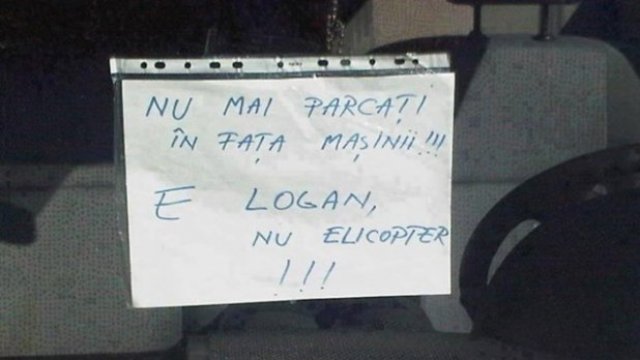 NU MAI PARCAȚI
ÎN FAȚA MAȘINII!!!
E LOGAN,
NU ELICOPTER
!!!